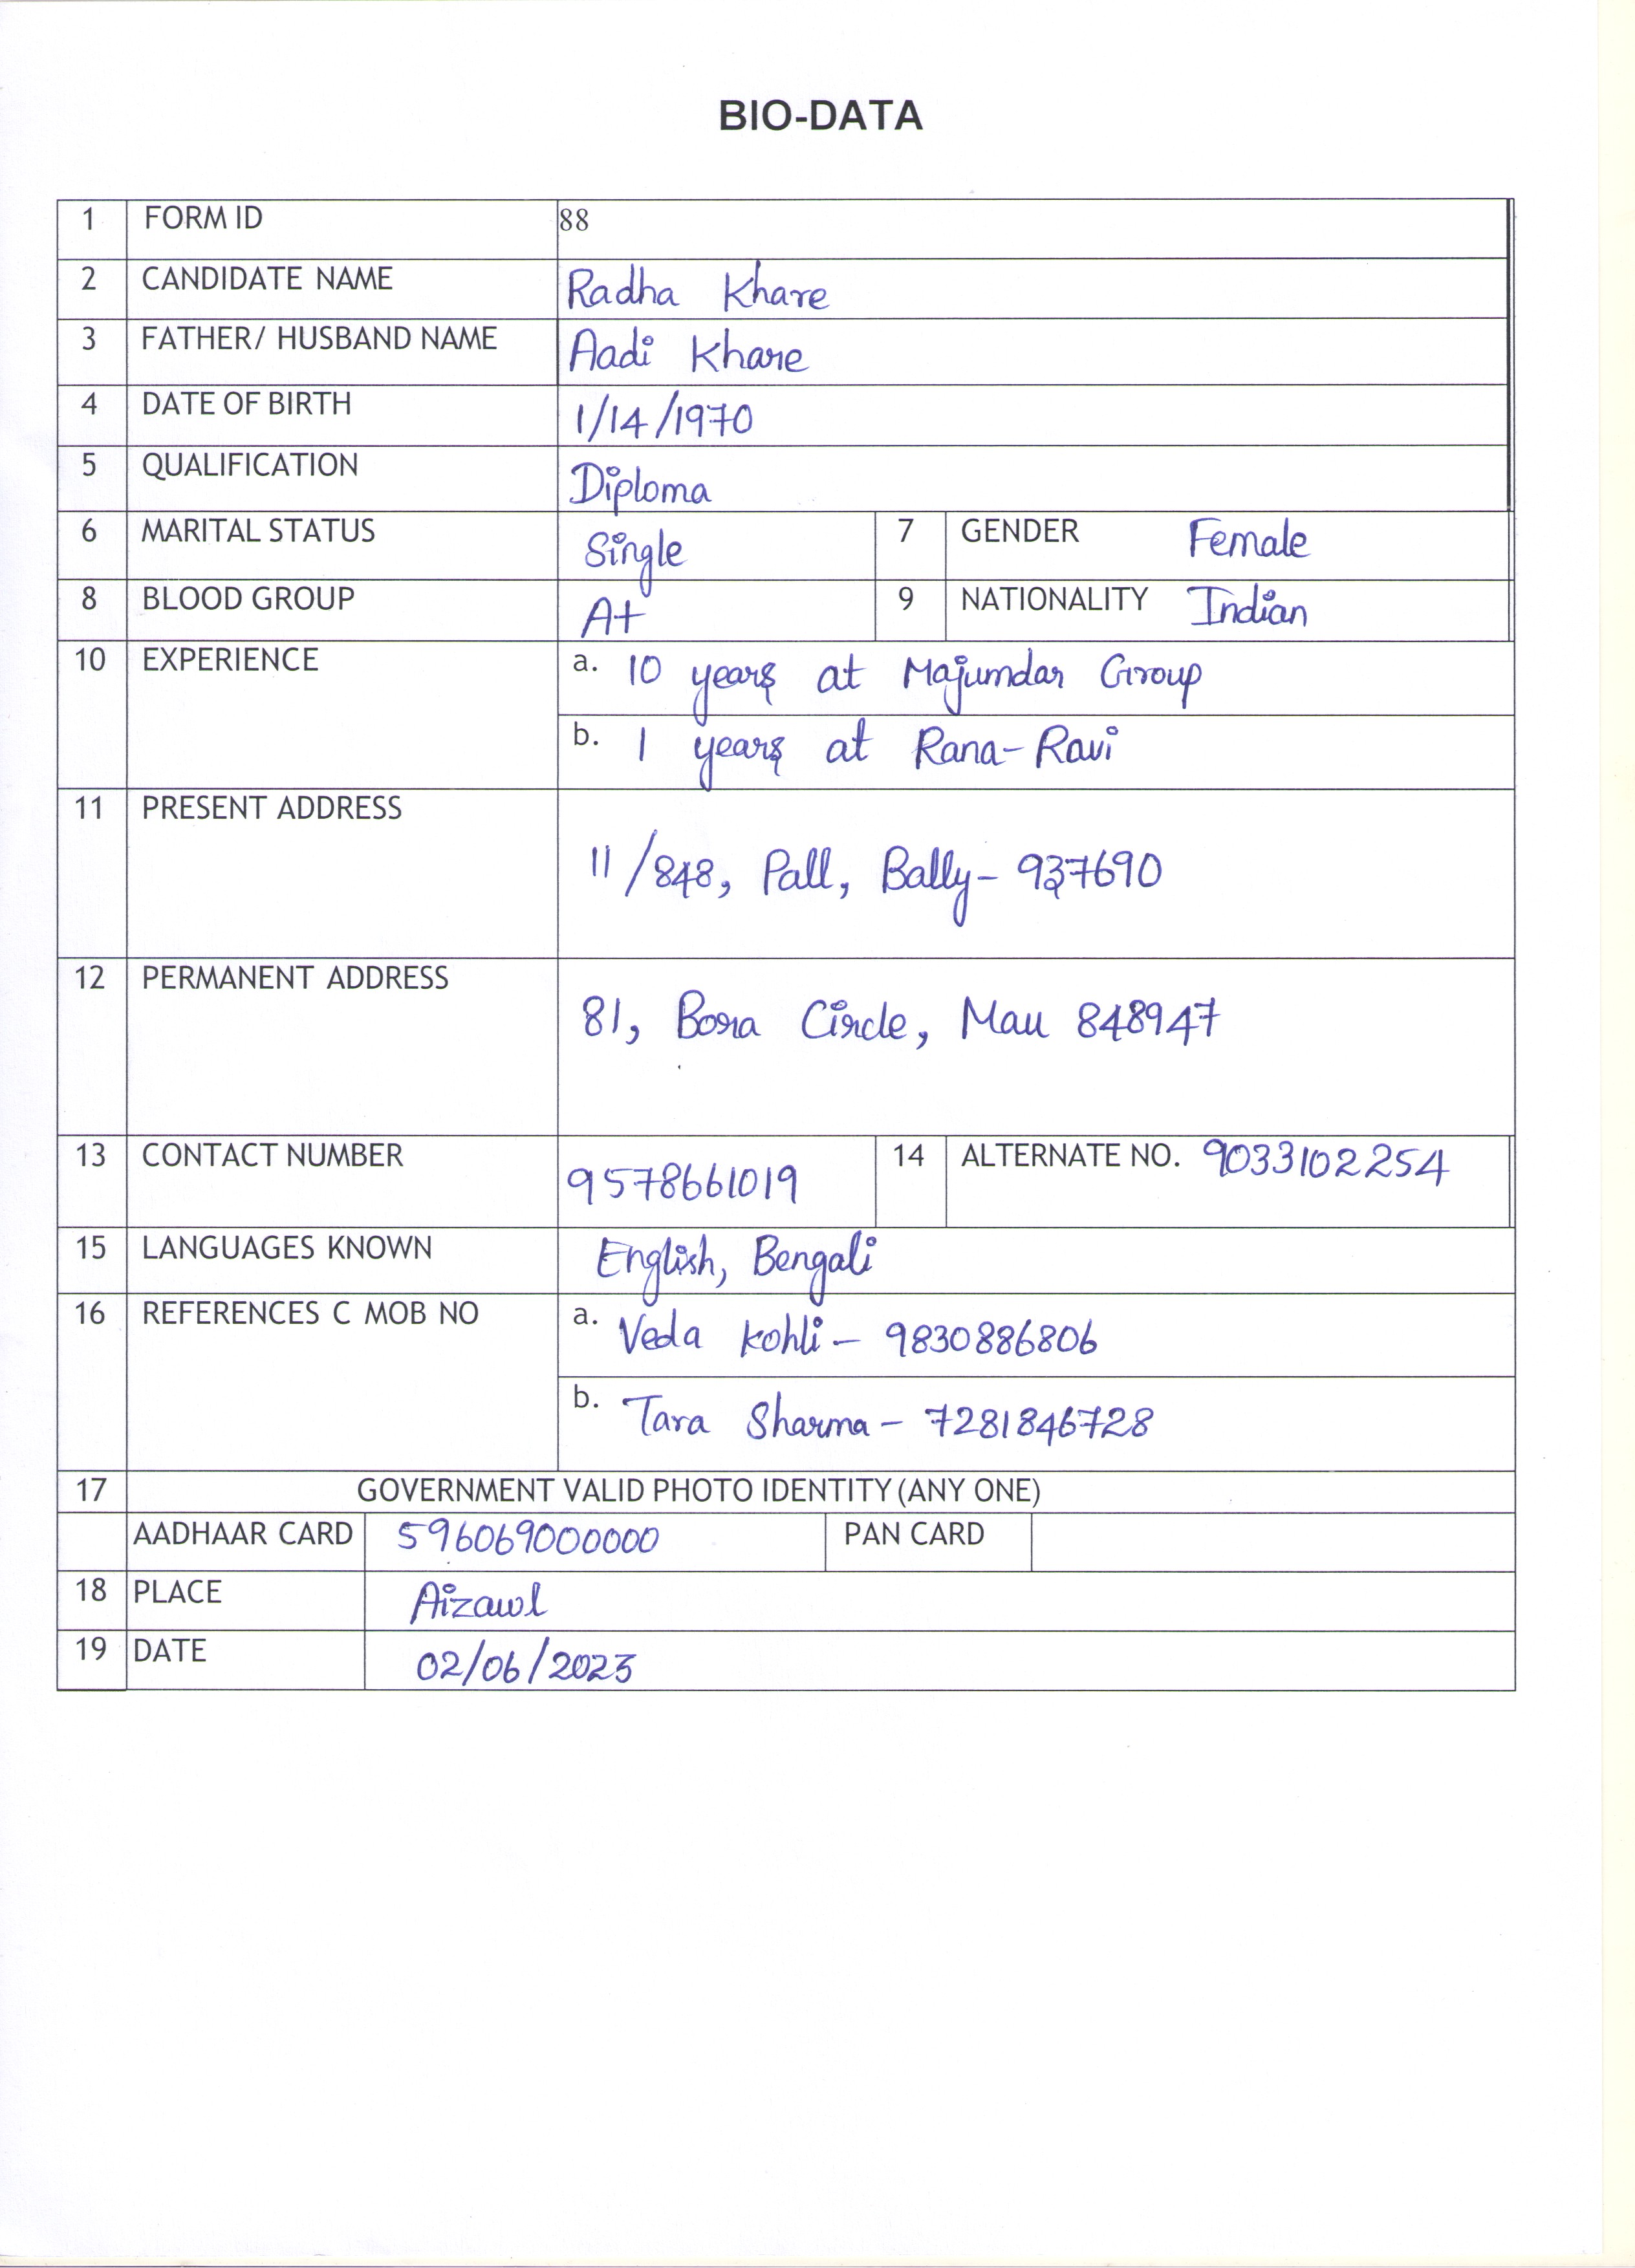 BIO-DATA
1 FORM ID 88
2 CANDIDATE NAME Radha Khare
3 FATHER/ HUSBAND NAME Aadi Khare
4 DATE OF BIRTH 1/14/1970
5 QUALIFICATION Diploma
6 MARITAL STATUS Single 7 GENDER Female
8 BLOOD GROUP A+ 9 NATIONALITY Indian
10 EXPERIENCE a. 10 years at Majumdar Group
b. 1 years at Rana-Ravi
11 PRESENT ADDRESS 11/848, Pall, Bally- 937690
12 PERMANENT ADDRESS 81, Bora Circle, Mau 848947
13 CONTACT NUMBER 9578661019 14 ALTERNATE NO. 9033102254
15 LANGUAGES KNOWN English, Bengali
16 REFERENCES C MOB NO a. Veda Kohli - 9830886806
b. Tara Sharma - 7281846728
17 GOVERNMENT VALID PHOTO IDENTITY (ANY ONE)
AADHAAR CARD 596069000000 PAN CARD
18 PLACE Aizawl
19 DATE 02/06/2023